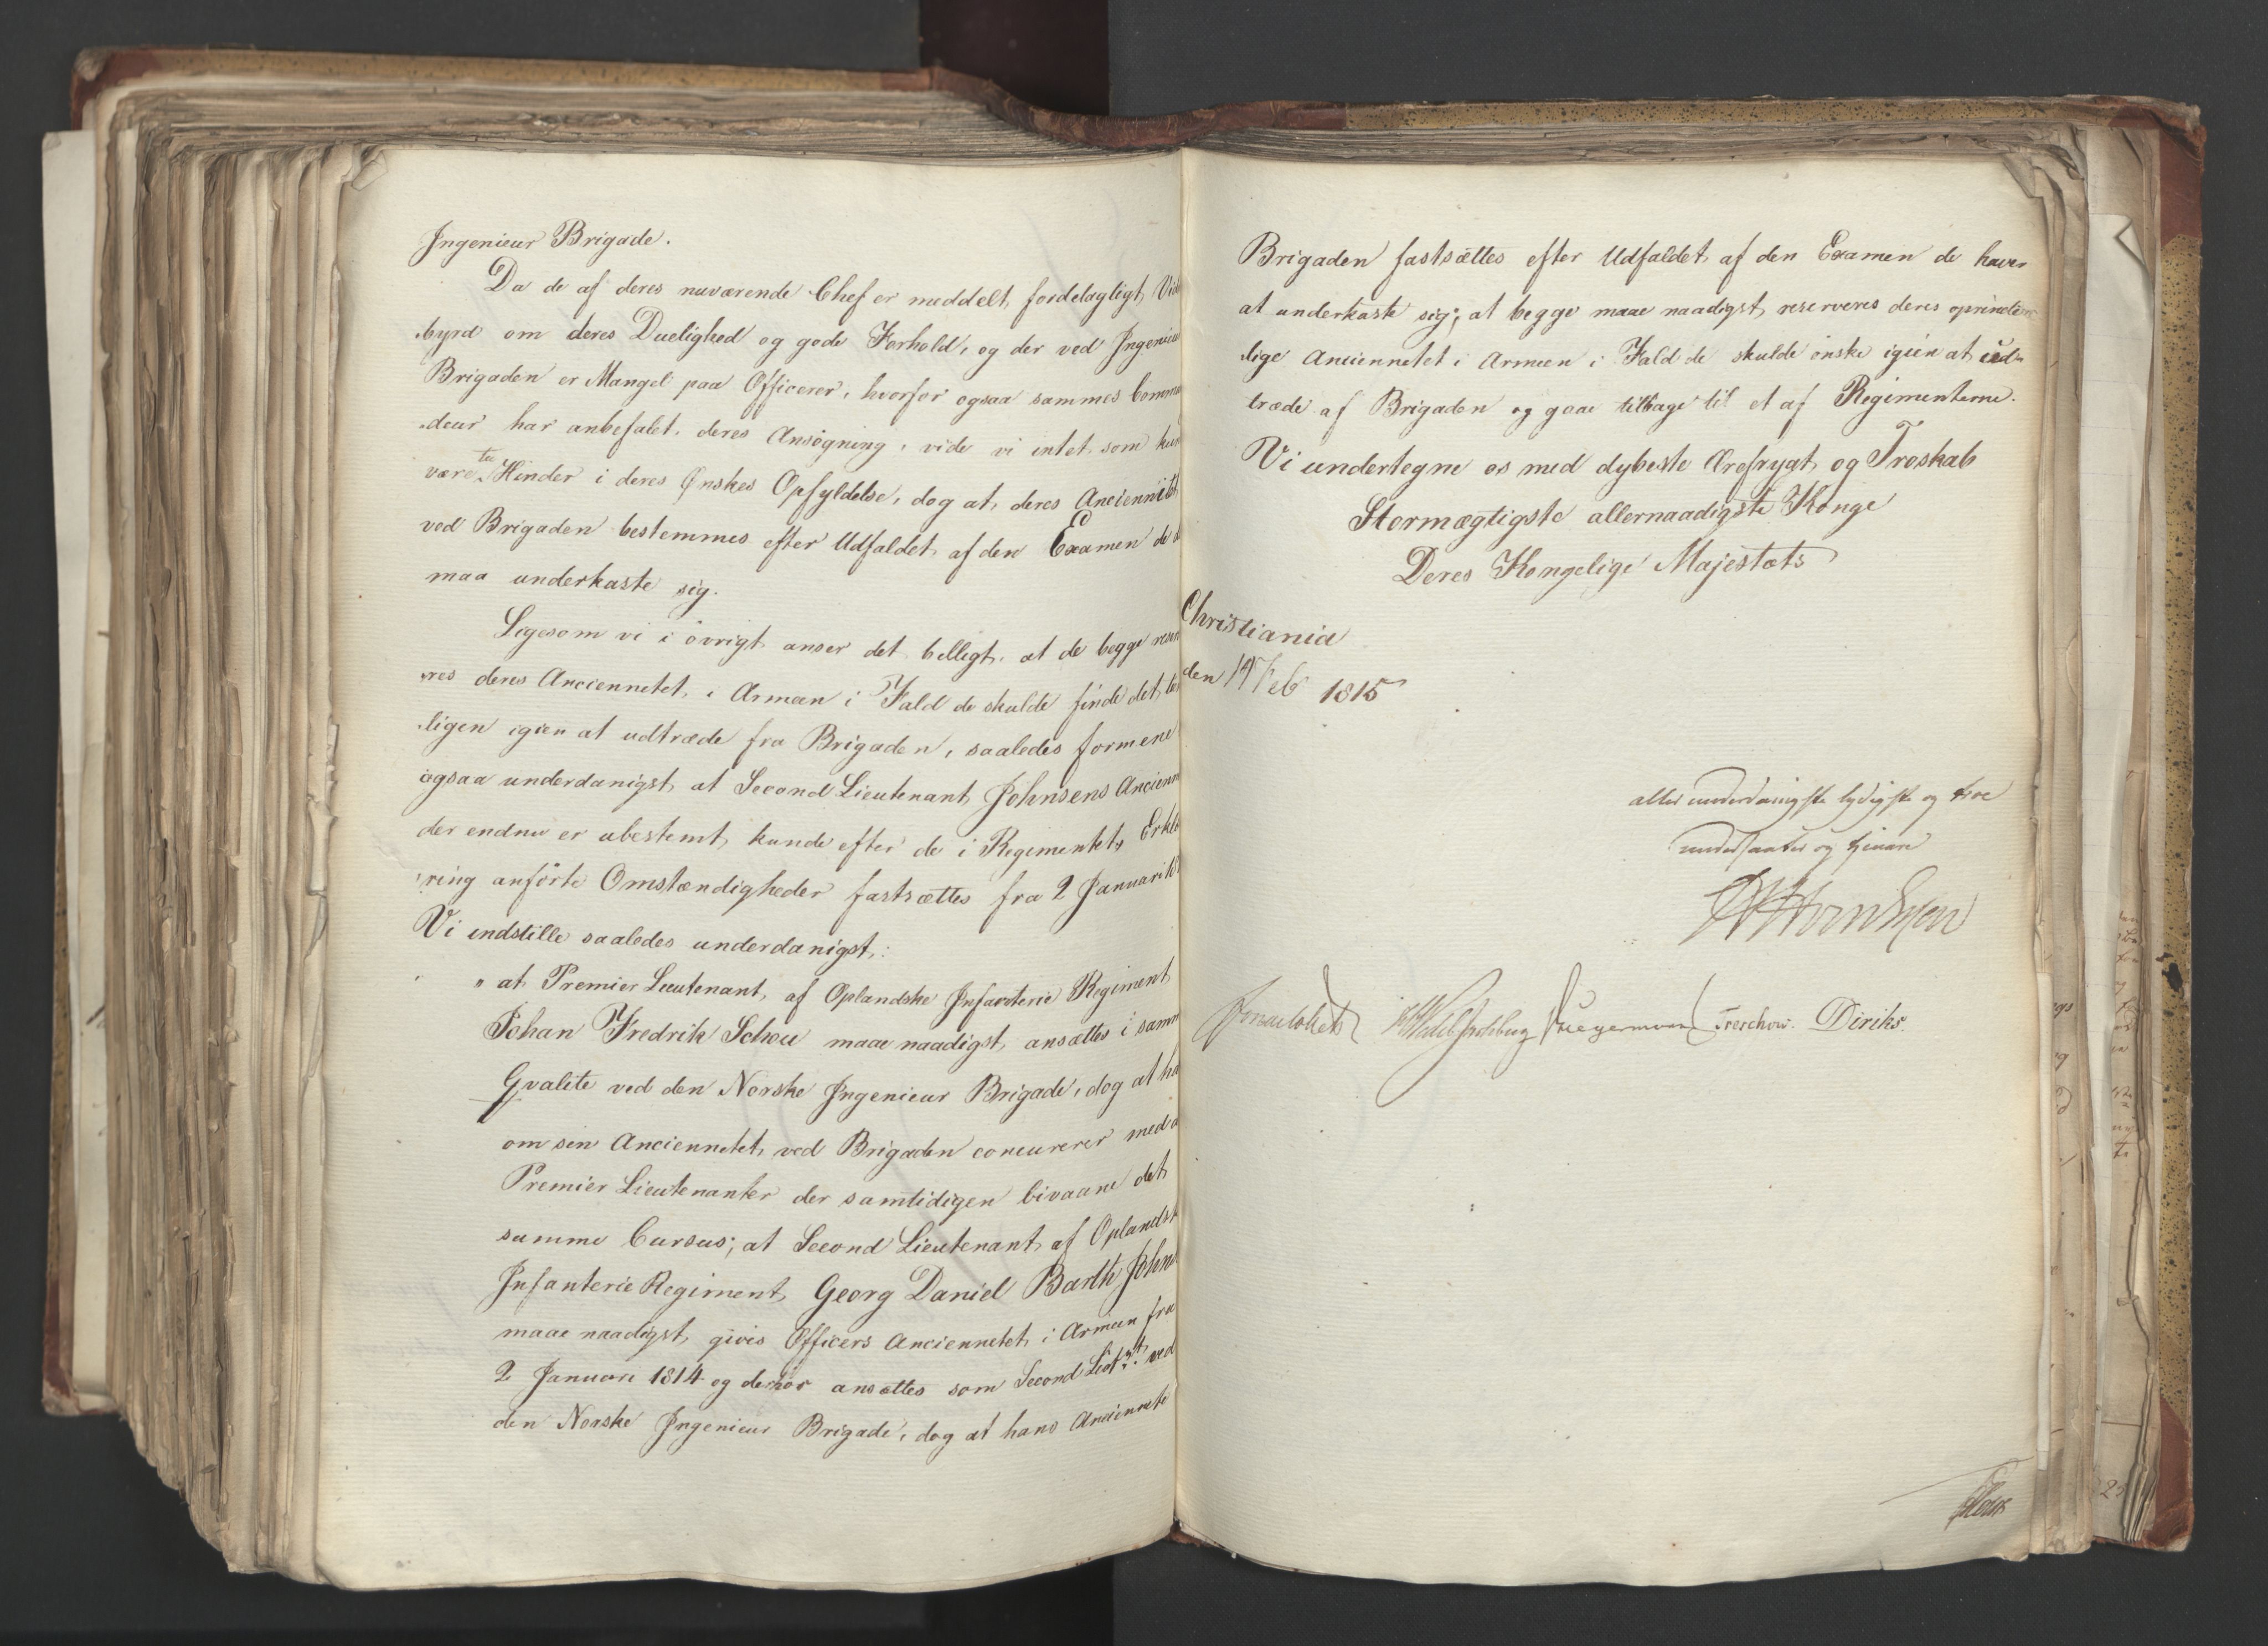 Ingenieur Brigade.
Da de af deres nuværende Chefer meddelt fordelagligt Vid
byrd om deres Duelighed og gode Forhold, og der ved Ingenieur
Brigaden er Mangel paa Officerer, hvorfor ogsaa sammes Comman
deur har anbefalet deres Ansøgning, vide vi intet som kun
være til Hinder i deres Ønskes Opfyldelse, dog at deres Anciennitet
ved Brigaden bestemmes efter Udfaldet af den Examen de
maa underkaste sig.
Ligesom vi i øvrigt anser det billigt, at de begge reser
res deres Anciennetet i Armeen i Fald de skulde finde det
ligen igien at udtræde fra Brigaden, saaledes formene
ogsaa underdanigst at Second Lieutenant Johnsens Ancienn
der endnu er ubestemt, kunde efter de i Regimentets Erklæ
ring anførte Omstændigheder fastsættes fra 2 Januari
Vi indstille saaledes underdanigst:
" at Premier Lieutenant af Oplandske Infanterie Regiment
Johan Fredrik Schou maae naadigst ansættes i samm
Qvalite ved den Norske Ingenieur Brigade, dog at ha
om sin Anciennetet ved Brigaden concurerer med
Premier Lieutenanter der samtidigen bivaane det
samme Cursus; at Second Lieutenant af Oplandsk
Infanterie Regiment Georg Daniel Barth Johns
maae naadigst givis Officers Anciennetet i Armeen fra
2 Januari 1814 og derhos ansættes som Second Lieutnt ved
den Norske Ingenieur Brigade, dog at hans Anciennete
Brigaden fastsættes efter Udfaldet af den Examen de haver
at underkaste sig; at begge maae naadigst reserveres deres oprindte
lige Anciennetet i Armeen i Fald de skulde ønske igien at ud
træde af Brigaden og gaae tilbage til et af Regimenterne.
Vi undertegne os med dybeste Ærefrygt og Troskab
Stormægtigste allernaadigste Konge
Deres Kongelige Majestæts
Christiania
den Feb 1815
allerunderdanigste lydigste og troe
undersaatter og tjenere
Wedel Jarlsberg Krieger Treschow. Diriks.